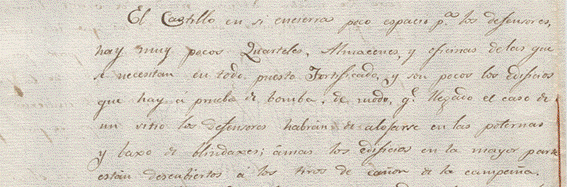 El Castillo en si encierra poco espacio p.ª los defensores,
hay muy pocos Quarteles, Almacenes, y oficinas de las que
se necesitan en todo puesto Fortificado, y son pocos los edificios
que hay á prueba de bomba, de modo, q.e llegado el caso de
un sitio los defensores habrán de alojarse en las poternas
y baxo de blindaxes; ámas los edificios en la mayor parte
están descubiertos a los tiros de cañon de la campaña.